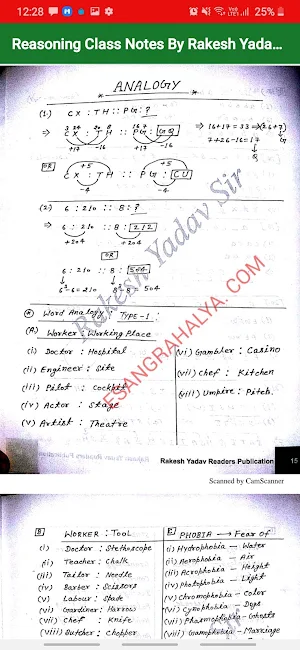 12:28
25%
Reasoning Class Notes By Rakesh Yada...
ANALOGY
(1) CX : TH :: PG : ?
⇒ CX : TH :: PG : GQ
3 24 20 8 16 7
+17 -16 +17 -16
⇒ 16+17 = 33 ⇒ (26+7)
G
7+26-16 = 17
Q
OR
+5 +5
CX : TH :: PG : CU
-4 -4
(2) 6 : 210 :: 8 : ?
⇒ 6 : 210 :: 8 : 212
+204 +204
OR
6 : 210 :: 8 : 504
6³-6=210 8³-8=504
Word Analogy : TYPE-1 :
(A) Worker : Working Place
(i) Doctor : Hospital
(ii) Engineer : Site
(iii) Pilot : Cockpit
(iv) Actor : Stage
(v) Artist : Theatre
(vi) Gambler : Casino
(vii) Chef : Kitchen
(viii) Umpire : Pitch.
Rakesh Yadav Sir
ESANGRAHALYA.COM
Rakesh Yadav Readers Publication 15
Scanned by CamScanner
B WORKER : TOOL
(i) Doctor : Stethoscope
(ii) Teacher : Chalk
(iii) Tailor : Needle
(iv) Barber : Scissors
(v) Labour : Spade
(vi) Gardiner : Harrow
(vii) Chef : Knife
(viii) Butcher : Chopper
PHOBIA → Fear of
(i) Hydrophobia - Water
(ii) Aerophobia - Air
(iii) Acrophobia - Height
(iv) Photophobia - Light
(v) Chromophobia - Color
(vi) Cynophobia - Dogs
(vii) Phasmophobia - Ghosts
(viii) Gamophobia - Marriage